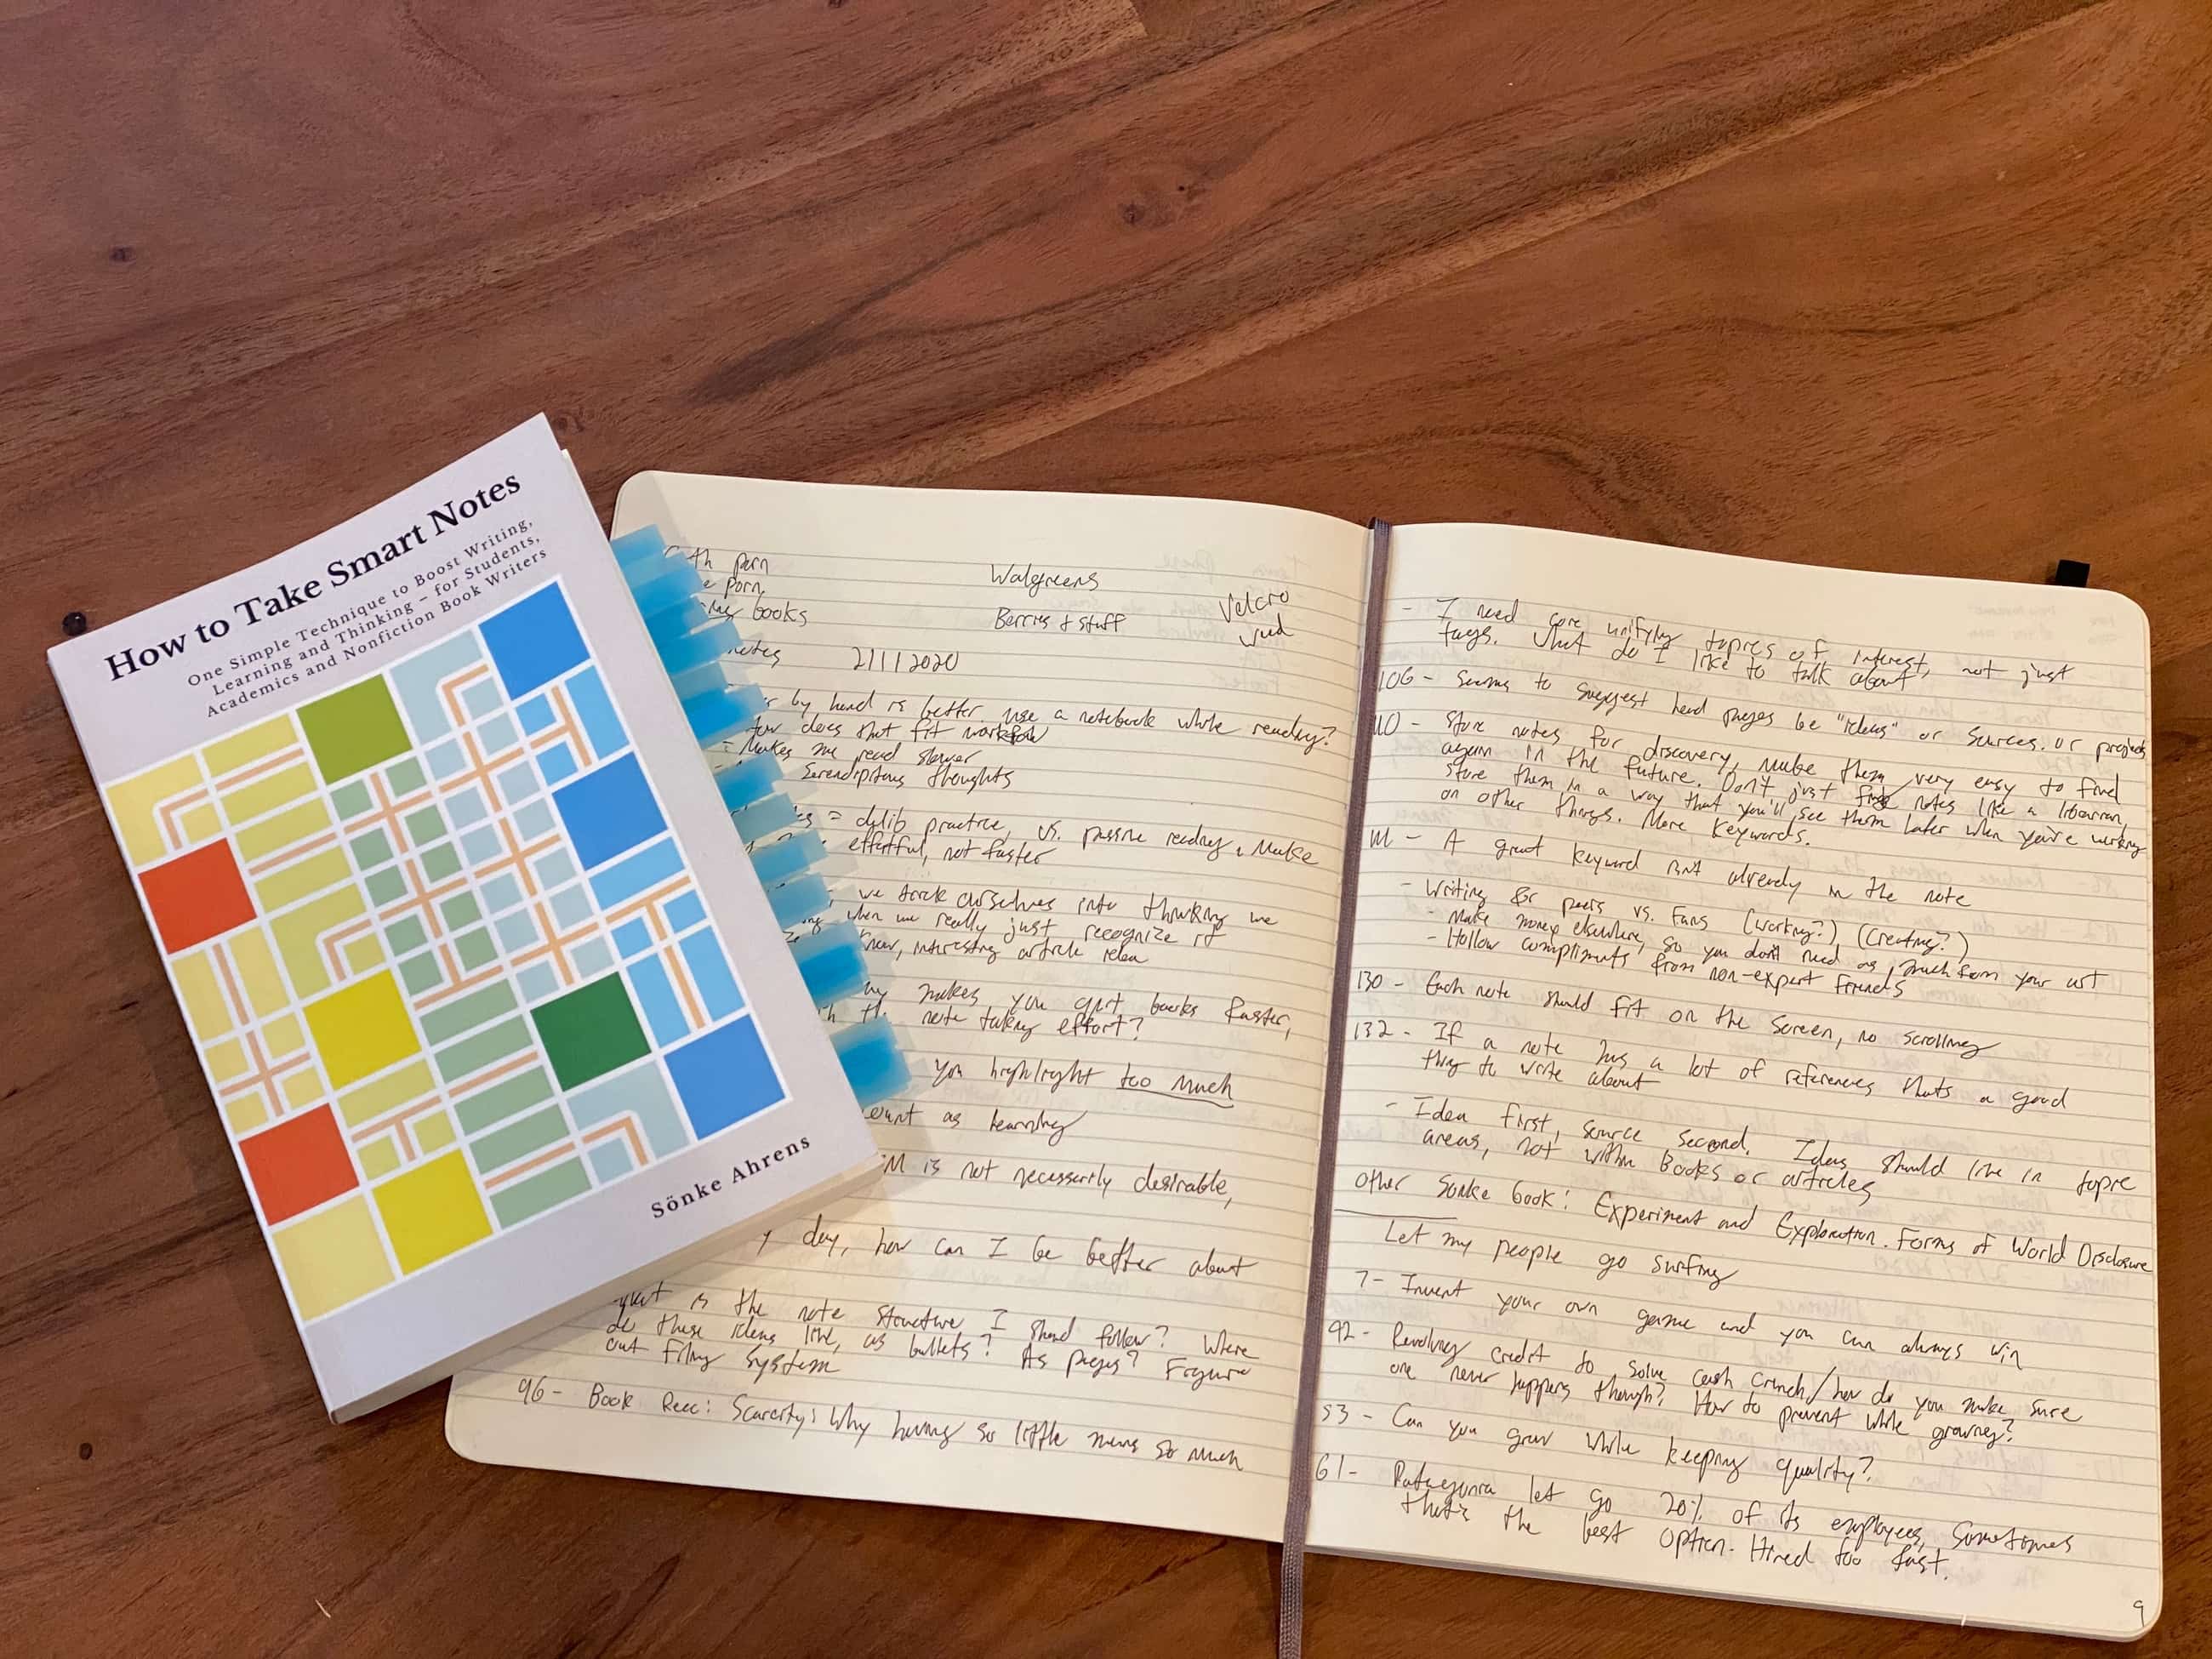 How to Take Smart Notes
One Simple Technique to Boost Writing,
Learning and Thinking – for Students,
Academics and Nonfiction Book Writers
Sönke Ahrens
Walgreens
Velcro
books
Berries & stuff
notes 2/11/2020
by hand is better use a notebook while reading?
does that fit workflow
- Makes me read slower
Serendipitous thoughts
= delib practice, vs. passive reading. Make
effortful, not faster
we trick ourselves into thinking we
when we really just recognize it
new, interesting article idea
makes you quit books faster,
note taking effort?
you highlight too much
count as learning
is not necessarily desirable,
day, how can I be better about
is the note structure I should follow? Where
do these ideas live, as bullets? As pages? Figure
out filing system
96 - Book Rec: Scarcity: Why having so little means so much
- I need core unifying topics of interest, not just
tags. What do I like to talk about
106 - Seems to suggest head pages be "ideas" or sources. or projects
110 - Store notes for discovery, make them very easy to find
again in the future. Don't just notes like a librarian,
store them in a way that you'll see them later when you're working
on other things. More keywords.
111 - A great keyword isnt already in the note
- Writing for peers vs. Fans (working?) (Creating?)
- Make money elsewhere, so you don't need as much from your art
- Hollow compliments from non-expert friends
130 - Each note should fit on the screen, no scrolling
132 - If a note has a lot of references thats a good
thing to write about
- Idea first, source second. Ideas should live in topic
areas, not within Books or articles
other Sonke book: Experiment and Exploration. Forms of World Disclosure
Let my people go surfing
7 - Invent your own game and you can always win
92 - Revolving credit to solve cash crunch/how do you make sure
one never happens though? How to prevent while growing?
53 - Can you grow while keeping quality?
61 - Patagonia let go 20% of its employees, sometimes
that's the best option. Hired too fast.
9